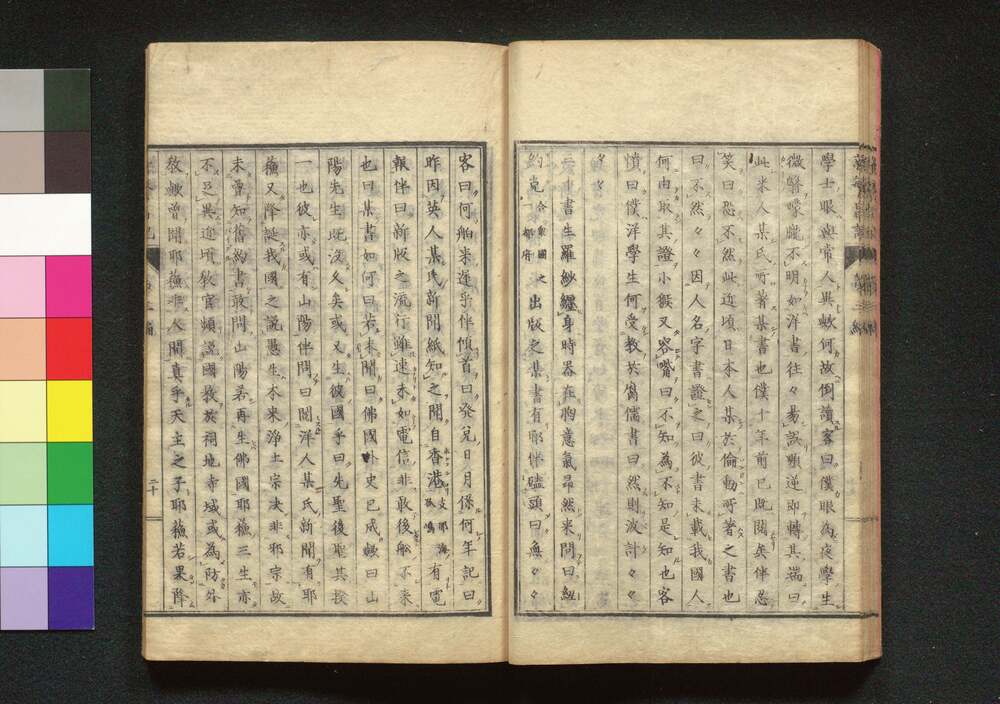 學士眼與常人異歟何故倒讀客曰僕眼為度學生
微醫曚朧不明如洋書往々易誤顚逆即轉其端曰
此米人某氏所著某書也僕十年前已既閱矣伴忍
笑曰恐不然此近頃日本人某於倫動所著之書也
曰不然々々因人名字書證之曰彼書未載我國人
何由取其證小髮又容嘴曰不知為不知是知也客
憤曰僕洋學生何受教於腐儒書曰然則波計々々
一書生羅紗纏身時器在胸意氣昂然来問曰紐
約克合衆國之都府出版之某書有耶伴瞌頭曰無々々
客曰何舶来遅乎伴傾首曰発兌日月係何年記曰
昨因英人某氏新聞紙知之聞自香港支那海孤嶋有電
報伴曰新版之流行雖速未如電信非最後舩不来
也曰某書如何曰若未聞曰佛國外史已成歟曰山
陽先生既没久矣或又生彼國乎曰先聖後聖其揆
一也彼亦或有山陽伴問曰聞洋人某氏新聞有耶
蘓又降誕我國之説愚生本来浄土宗決非邪宗故
未曾知舊約書敢問山陽若再生佛國耶蘓三生亦
不足異近頃教官頻説國教於祠地寺域或為防外
教歟曽聞耶蘓非人間真乎天主之子耶蘓若果降
二十